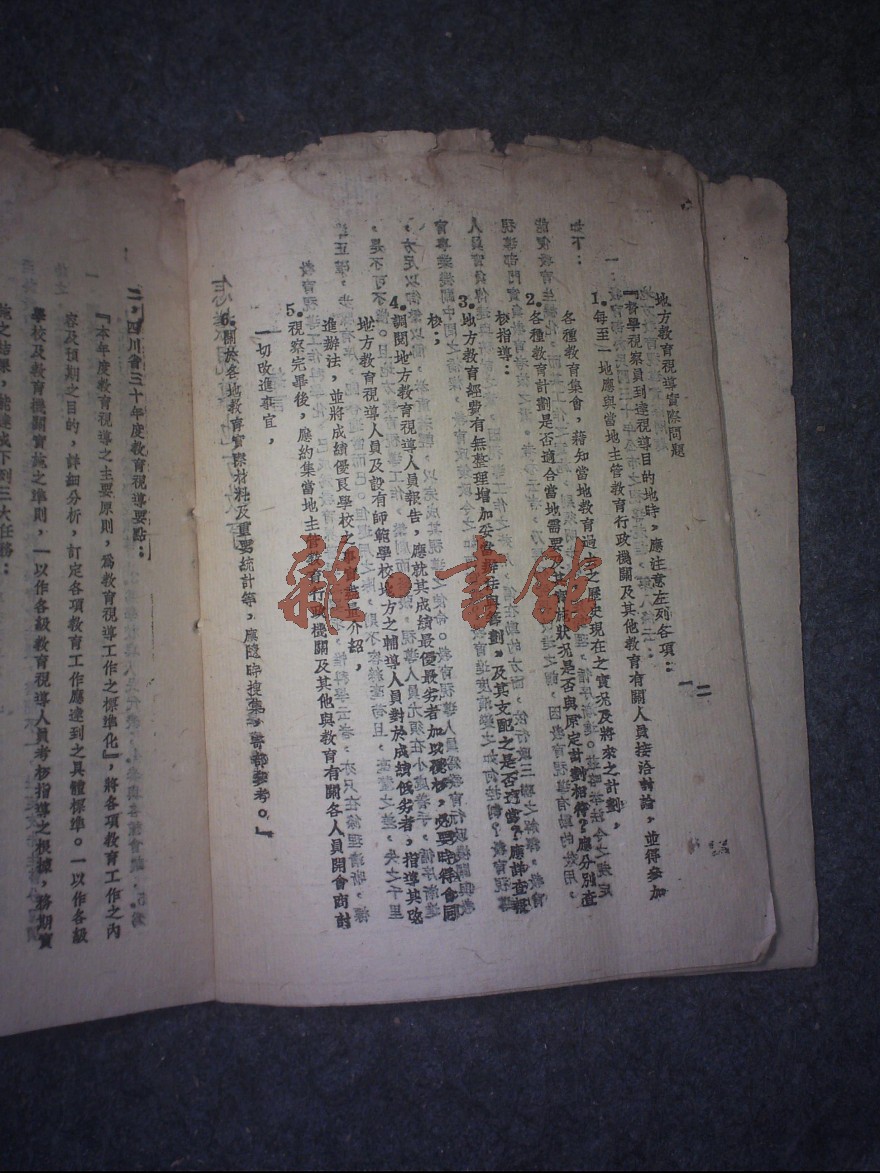 地方教育視導實際問題
一二
『督學視察員到達視導目的地時，應注意左列各項：
1. 每至一地應與當地主管教育行政機關及其他教育有關人員接洽討論，並得參加
各種教育集會，藉知當地教育過去之歷史現在之實况及將來之計劃，
2. 各種教育計劃是否適合當地需要？其實施狀况是否與原定計劃相符？應分別查
核指導：
3. 地方教育經費有無整理增加 及其支配之是否 應詳查
核；
4. 調閱地方教育視導人員報告，應就其成績最優最劣者加以 必要時得會同
地方教育視導人員及設有師範學校地方之輔導人員對於成績低劣者，指導其改
進辦法，並將成績優良學校之 介紹，
5. 視察完畢後，應約集當地主管教育行政機關及其他與教育有關各人員開會商討
一切改進事宜，
6. 關於各地教育實際材料及重要統計等，應隨時搜集，寄部參考。』
二，四川省三十年度教育視導要點：
『本年度教育視導之主要原則，爲教育視導工作之標準化』，將各項教育工作之內
容及預期之目的，詳細分析，訂定各項教育工作應達到之具體標準。一以作各級
學校及教育機關實施之準則，一以作各級教育視導人員考核指導之根據，務期實
施之結果，能達成下列三大任務：
雜·書館